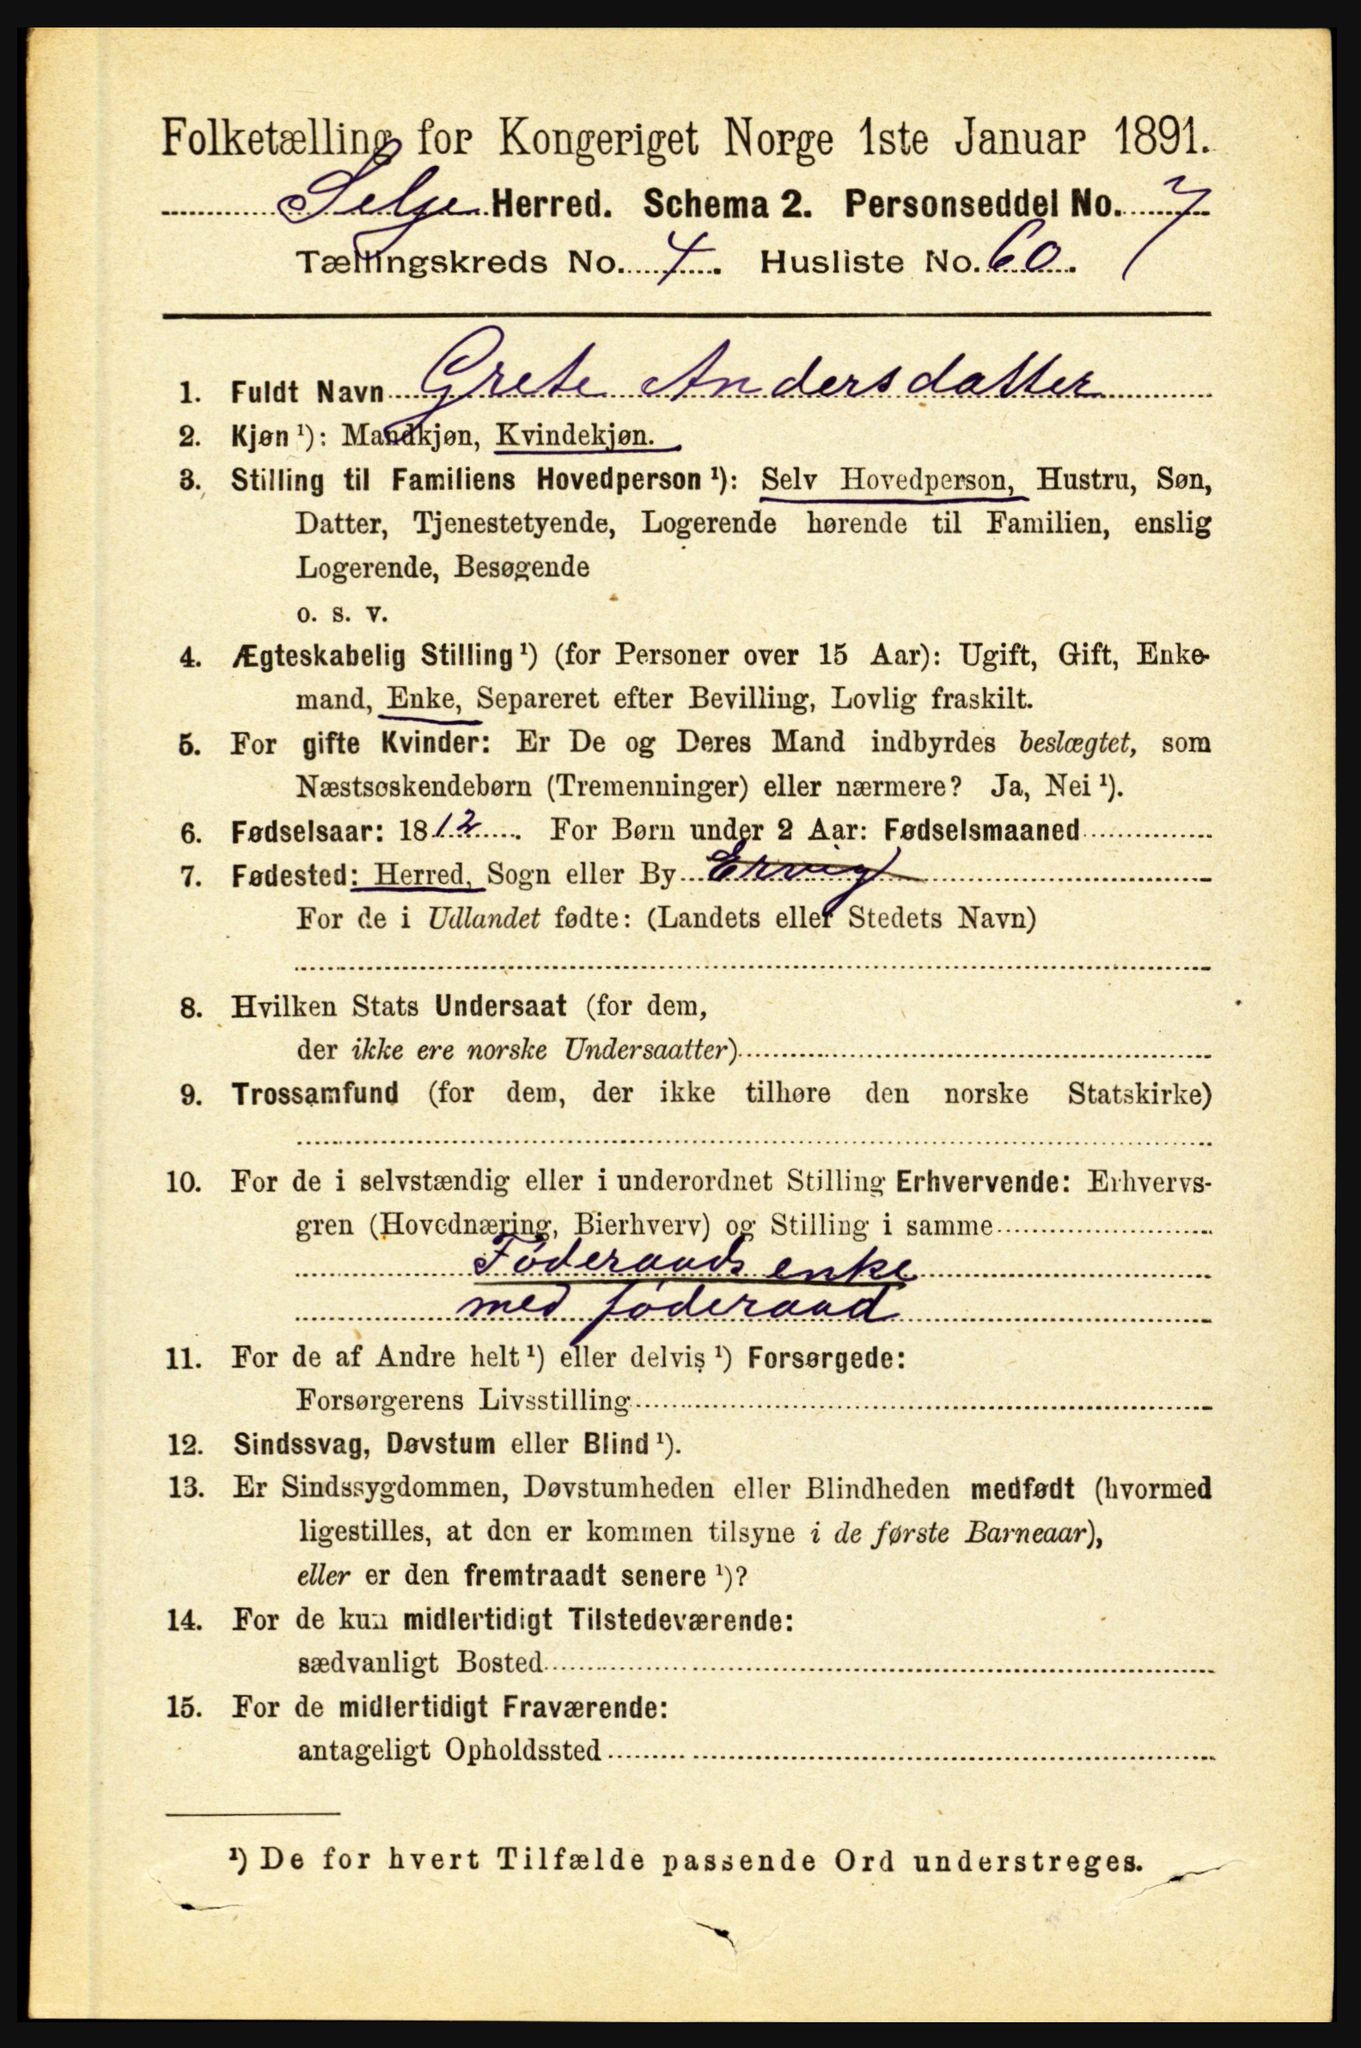 Folketælling for Kongeriget Norge 1ste Januar 1891.
Selje Herred. Schema 2. Personseddel No. 7
Tællingskreds No. 4. Husliste No. 60.
1. Fuldt Navn Grete Andersdatter
2. Kjøn ¹): Mandkjøn, Kvindekjøn.
3. Stilling til Familiens Hovedperson ¹): Selv Hovedperson, Hustru, Søn,
Datter, Tjenestetyende, Logerende hørende til Familien, enslig
Logerende, Besøgende
o. s. v.
4. Ægteskabelig Stilling ¹) (for Personer over 15 Aar): Ugift, Gift, Enke-
mand, Enke, Separeret efter Bevilling, Lovlig fraskilt.
5. For gifte Kvinder: Er De og Deres Mand indbyrdes beslægtet, som
Næstsøskendebørn (Tremenninger) eller nærmere? Ja, Nei ¹).
6. Fødselsaar: 1812. For Børn under 2 Aar: Fødselsmaaned
7. Fødested: Herred, Sogn eller By Ervig
For de i Udlandet fødte: (Landets eller Stedets Navn)
8. Hvilken Stats Undersaat (for dem,
der ikke ere norske Undersaatter)
9. Trossamfund (for dem, der ikke tilhøre den norske Statskirke)
10. For de i selvstændig eller i underordnet Stilling Erhvervende: Erhvervs-
gren (Hovednæring, Bierhverv) og Stilling i samme
Føderaads enke
med føderaad
11. For de af Andre helt ¹) eller delvis ¹) Forsørgede:
Forsørgerens Livsstilling
12. Sindssvag, Døvstum eller Blind ¹).
13. Er Sindssygdommen, Døvstumheden eller Blindheden medfødt (hvormed
ligestilles, at den er kommen tilsyne i de første Barneaar),
eller er den fremtraadt senere ¹)?
14. For de kun midlertidigt Tilstedeværende:
sædvanligt Bosted
15. For de midlertidigt Fraværende:
antageligt Opholdssted
¹) De for hvert Tilfælde passende Ord understreges.